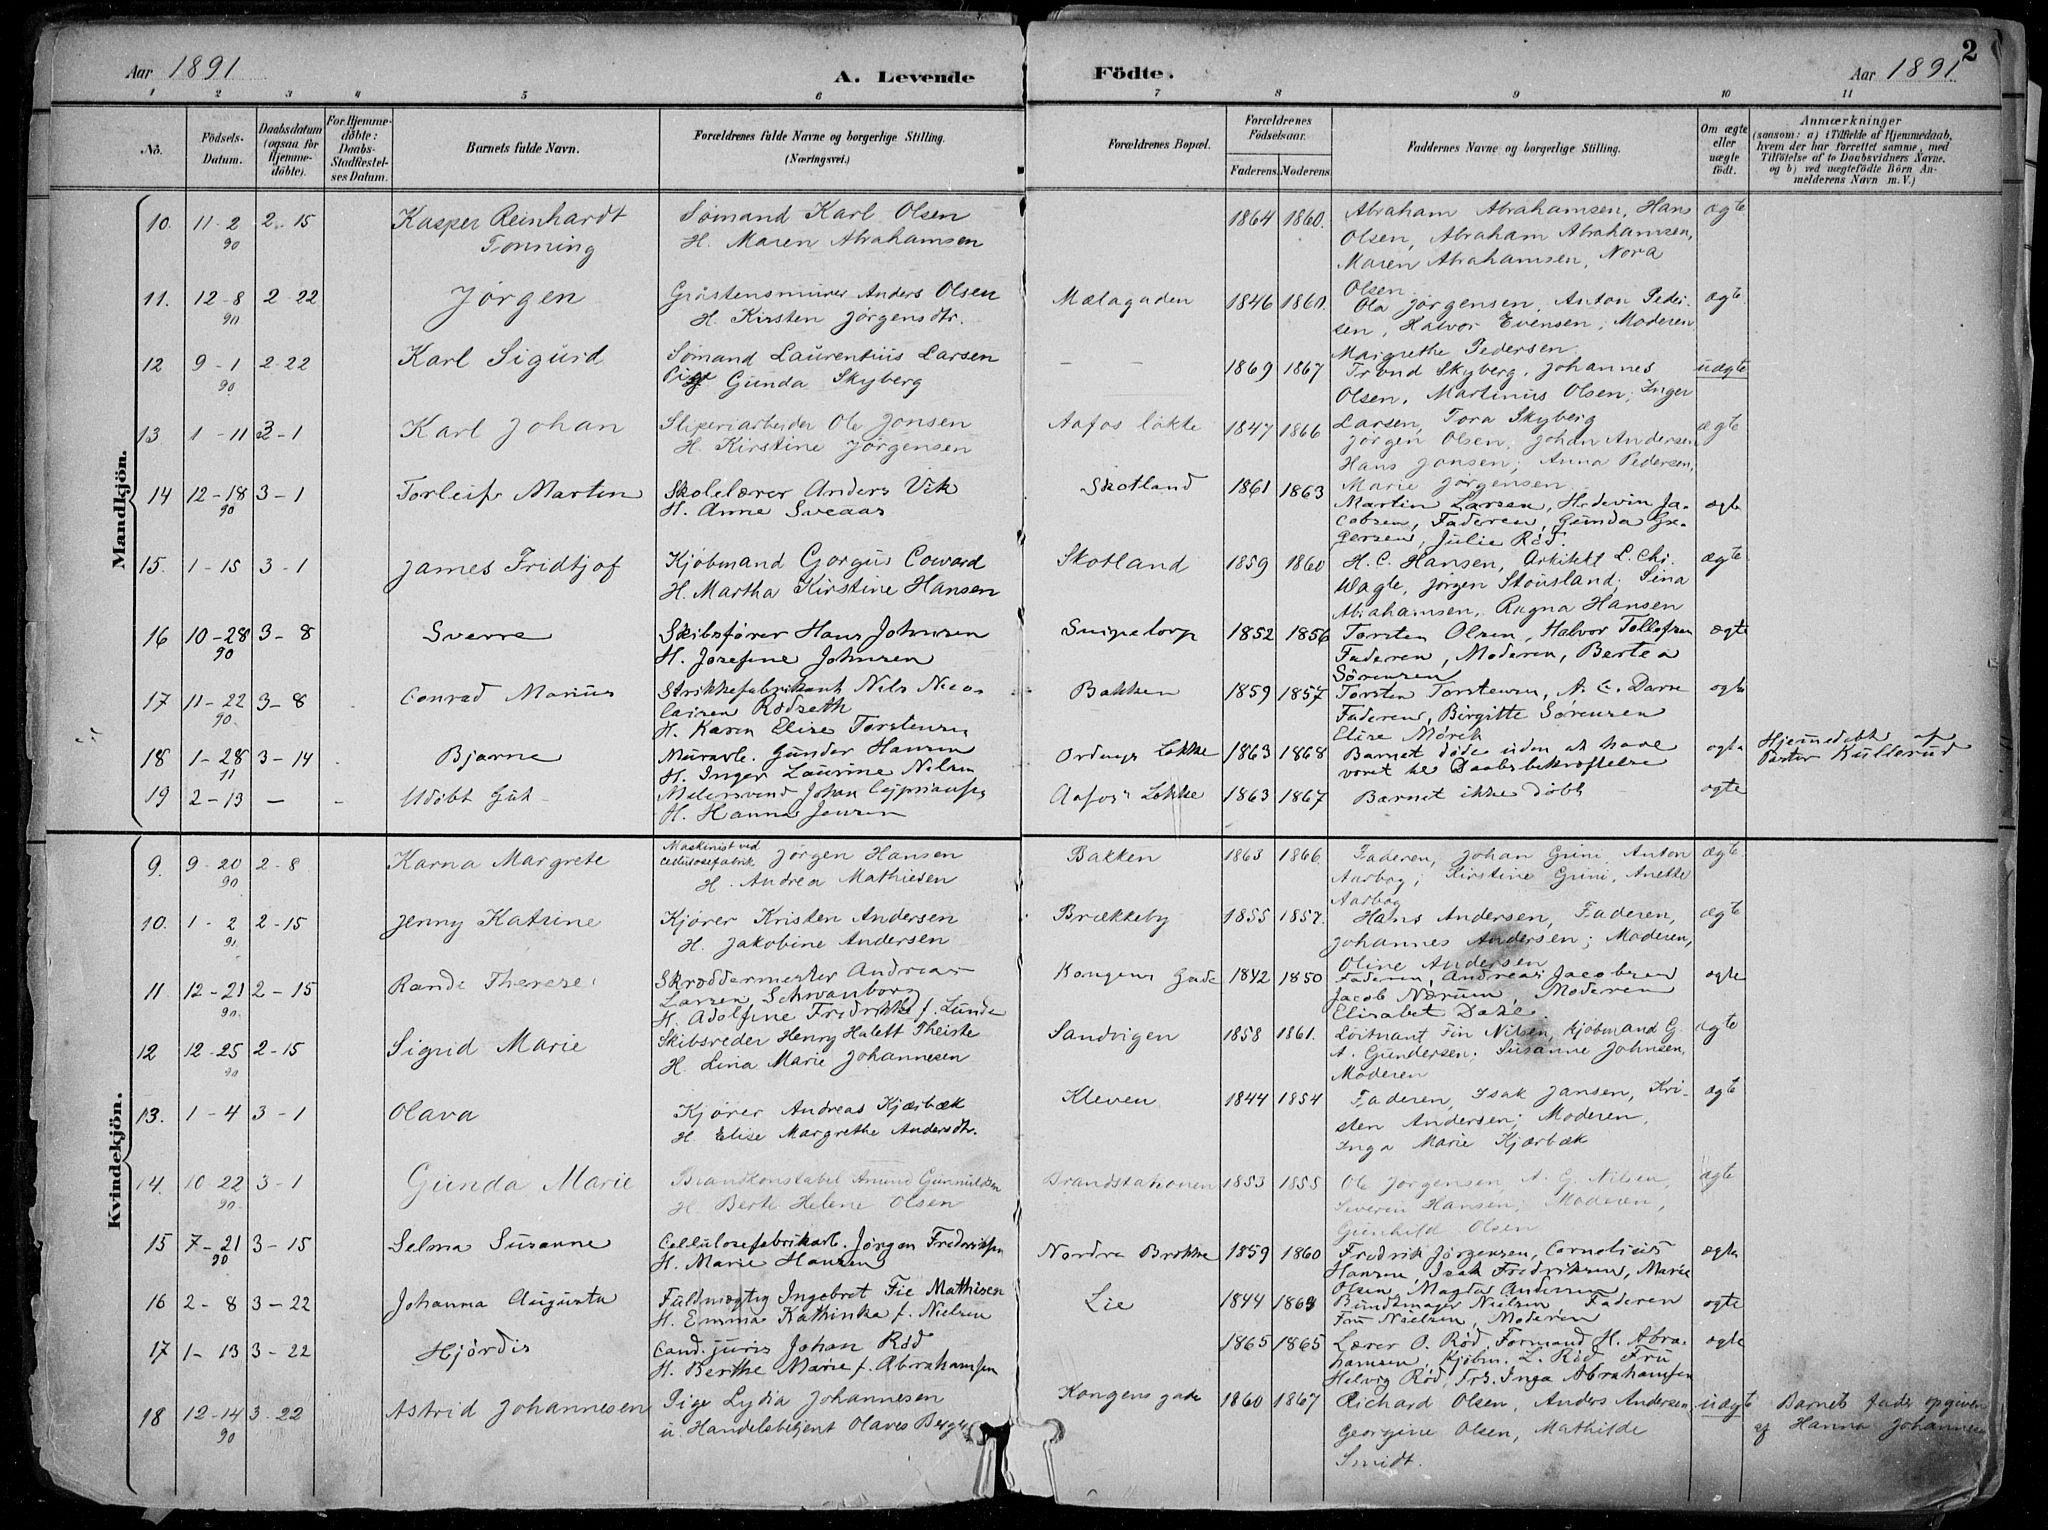 Aar 1891
A. Levende
Födte.
Aar 1891.
2
1 2 3 4 5 6 7 8 9 10 11
No.
Födsels-Datum.
Daabsdatum (ogsaa for Hjemme-döbte).
For Hjemme-döbte: Daabs-Stadfæstel-ses Datum.
Barnets fulde Navn.
Forældrenes fulde Navne og borgerlige Stilling.
(Næringsvei.)
Forældrenes Bopæl.
Forældrenes Födselsaar.
Faderens. Moderens.
Faddernes Navne og borgerlige Stilling.
Om ægte eller uægte födt.
Anmærkninger
(saasom: a) i Tilfælde af Hjemmedaab, hvem der har forrettet samme, med Tilföielse af to Daabsvidners Navne. og b) ved uægtefödte Börn An-melderens Navn m.V.)
Mandkjön.
10. 11-2 90 2-15 Kasper Reinhardt Tonning Sømand Karl Olsen
H. Maren Abrahamsen 1864 1860. Abraham Abrahamsen, Hans
Olsen, Abraham Abrahamsen,
Maren Abrahamsen, Nora
Olsen ægte
11. 12-8 90 2-22 Jørgen Gråstensmurer Anders Olsen
H. Kirsten Jørgensdtr. Mælagaden 1846 1860. Ola Jørgensen, Anton Peder-
sen, Halvor Evensen; Moderen
Margrethe Pedersen ægte
12 9-1 90 2-22 Karl Sigurd Sømand Laurentius Larsen
Pige Gunda Skyberg — — 1869 1867 Trond Skyberg, Johannes
Olsen, Martinus Olsen; Inger
Larsen, Tora Skyberg uægte
13 1-11 3-1 Karl Johan Sliperiarbeider Ole Jonsen
H. Kirstine Jørgensen Aafos løkke 1847 1866 Jørgen Olsen, Johan Andersen
Hans Jonsen; Anna Pedersen,
Marie Jørgensen ægte
14 12-18 90 3-1 Torleif Martin Skolelærer Anders Vik
H. Anne Sveaas Skotland 1861 1863 Martin Larsen, Hedevin Ja-
cobsen, Faderen, Gunda Gre-
gersen, Julie Rød. ægte
15. 1-15 3-1 James Fridtjof Kjøbmand Gorgus Coward
H. Martha Kirstine Hansen Skotland 1859 1860 H. C. Hansen, Arkitekt L. Chr.
Wagle, Jørgen Stousland; Sina
Abrahamsen, Ragna Hansen ægte
16 10-28 90 3-8 Sverre Skibsfører Hans Johnsen
H. Josefine Johnsen Snipetorp 1852 1856 Torsten Olsen, Halvor Tollefsen
Faderen, Moderen, Bertea
Sørensen ægte
17 11-22 90. 3-8 Conrad Marius Strikkefabrikant Nils Nico-
laisen Rødseth
H. Karen Elise Torstensen Bakken 1859 1857 Torsten Torstensen, A. C. Darre
Faderen, Birgitte Sørensen
Elise Mørck ægte
18 1-28 11 3-14 Bjarne Murarb. Gunder Hansen
H. Inger Laurine Nilsen Ordings Løkke 1863 1868 Barnet døde uden at have
været til Daabsbekræftelse ægte Hjemmedøbt af
Pastor Kullerud
19 2-13 — - Udøbt Gut - Møllersvend Johan Cyprianssen
H. Hanna Jensen Aafos Løkke 1863 1867 Barnet ikke døbt ægte
Kvindekjön.
9. 9-20 90 2-8 Karna Margrete Maskinist ved
Cellulosefabrik Jørgen Hansen
H. Andrea Mathiesen Bakken 1863 1866 Faderen, Johan Grini, Anton
Aarbog; Kirstine Grini, Anette
Aarbog ægte
10. 1-2 91. 2-15 Jenny Katrine Kjører Kristen Andersen
H. Jakobine Andersen Brækkeby 1855 1857. Hans Andersen, Faderen,
Johannes Andersen; Moderen,
Oline Andersen ægte
11 12-21 90. 2-15 Randi Therese Skræddermester Andreas
Larsen Schwanborg
H. Adolfine Fredrikke f. Lunde Kongens Gade 1842 1850 Faderen, Andreas Jacobsen
Jacob Nærum, Moderen
Elisabet Dahl. ægte
12 12-25 90 2-15 Sigrid Marie Skibsreder Henry Halett Theiste
H. Lina Marie Johannesen Sandvigen 1858 1861. Løitnant Fin Nilsen, Kjøbmand G.
A. Gundersen; Susanne Johnsen,
Moderen ægte
13. 1-4 3-1 Olava Kjører Andreas Kjærbæk
H. Elise Margrethe Andersdtr. Kleven 1844 1854 Faderen, Isak Jansen, Kri-
sten Andersen; Moderen,
Inga Marie Kjærbæk ægte
14. 10-22 90. 3-1 Gunda Marie Brandkonstabel Amund Gunnulsen
H. Berte Helene Olsen Brandstationen 1853 1855 Ole Jørgensen, A. G. Nilsen,
Severin Hansen; Moderen,
Gunhild Olsen ægte
15 7-21 90 3-15 Selma Susanne Cellulosefabrikarb. Jørgen Fredriksen
H. Marie Hansen Nordre Brække 1859 1860 Fredrik Jørgensen, Cornelius
Hansen, Isak Fredriksen, Marie
Olsen, Magda Andersen ægte
16 2-8 3-22 Johanna Augusta Fuldmægtig Ingebret Fie Mathisen
H. Emma Kathinka f. Nielsen Lie 1844 1863 Bundtmager Nielsen, Faderen
Fru Nielsen, Moderen ægte
17 1-13 3-22 Hjørdis Cand. juris Johan Rød
H. Berthe Marie f. Abrahamsen 1865 1865 Lærer O. Rød, Formand H. Abra-
hamsen, Kjøbm. L. Rød Fru
Helvig Rød, Frk. Inga Abrahamsen ægte
18 12-14 90 3-22 Astrid Johannesen Pige Lydia Johannesen
u. Handelsbetjent Olaves Berger Kongens gade 1860 1867 Richard Olsen, Anders Andersen,
Georgine Olsen, Mathilde
Smidt. uægt Barnets fader opgiven
af Hanna Johannesen